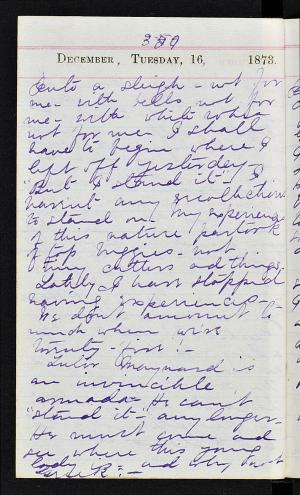 350
DECEMBER, TUESDAY, 16, 1873.
into a sleigh - not for
me - with bells not for
me - with white robes
not for me. I shall
have to begin where I
left off yesterday -
"But I stand it" - I
havn't any recollections
to stand on. My experience
of this nature partook
of top buggies - not
cutters and things.
Lately I have stopped
having experience -
amount to
much when wise
Twenty-first! -
Maynard is
an invincible
armada - He can't
"stand it" any longer -
He must come and
see where this young
lady is - and why don't